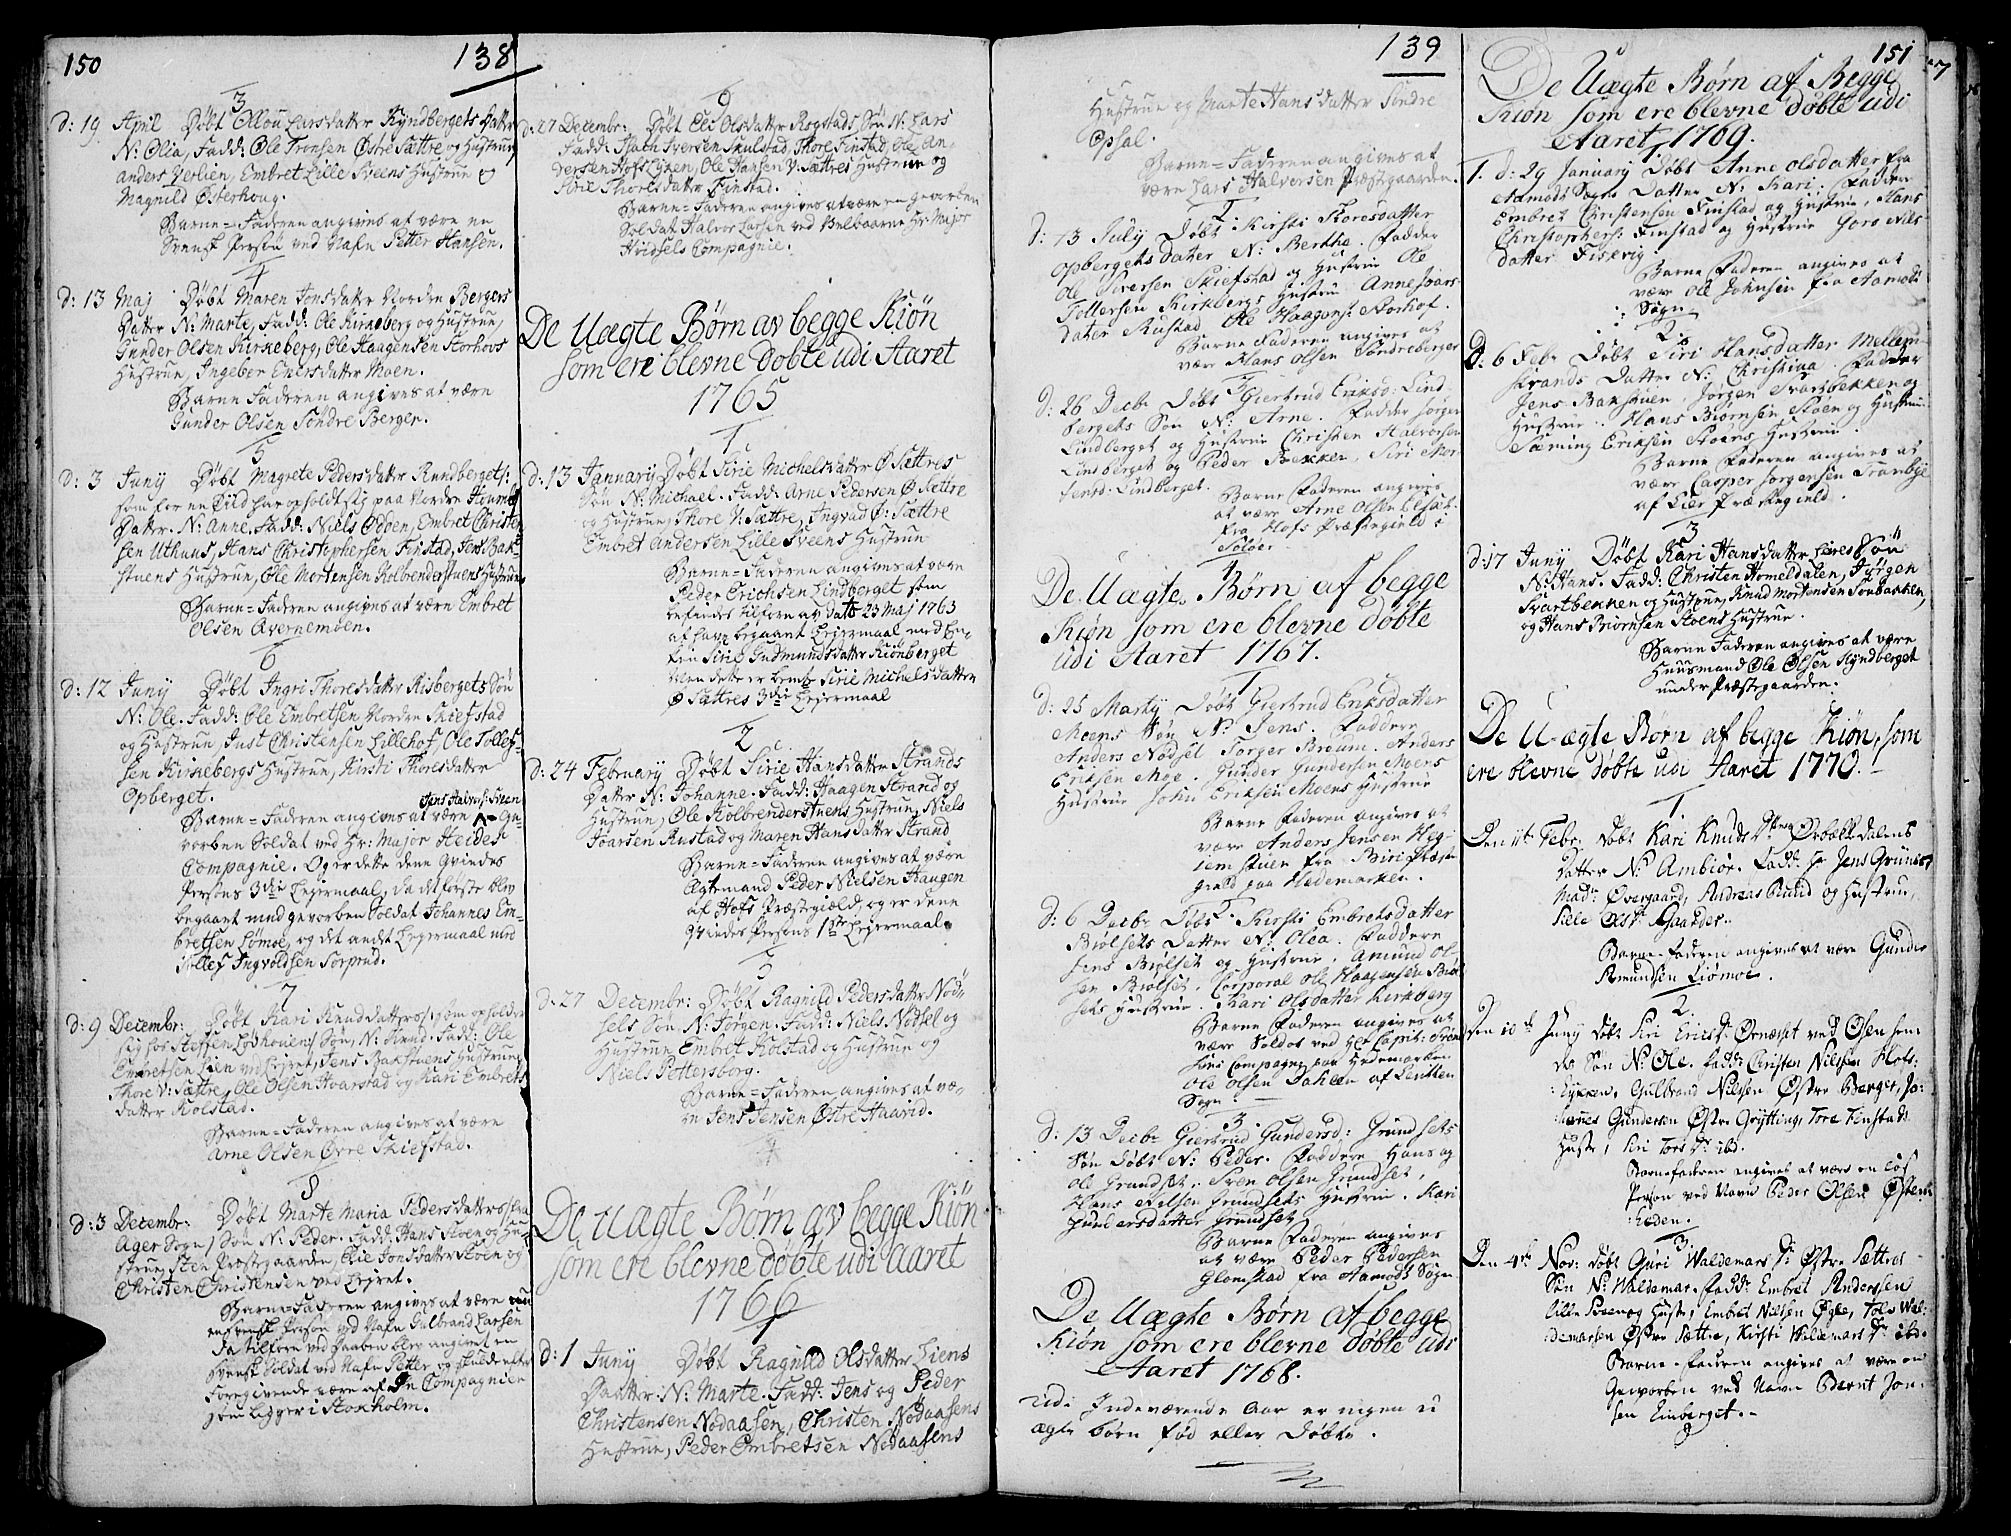 150
138
3
d: 19 April Døbt Ellou Larsdatter Kyndbergets Datter
N: Olia, Fadd: Ole Tronsen Østre Sættre og Hustrue,
anders Neslien, Embret Lille Sveens Hustrue og
Magnild Østerhoug.
Barne-Faderen angives at være en
Svensk Person ved Nafn Petter Hansen.
4
d: 13 Maj Døbt Maren Jonsdatter Norden Bergers
Datter N: Marte, Fadd: Ole Kirkeberg og Hustrue,
Gunder Olsen Kirkeberg, Ole Haagensen Storhovs
Hustrue, Ingeber Enersdatter Moen.
Barne Faderen angives at være
Gunder Olsen Søndre Berger.
5
d: 3 Juny Døbt Magrete Pedersdatter Rundbergets
som for en Tiid har opholdt sig paa Norden
Datter. N: Anne. Fadd: Niels Odden, Embret Christen
sen Uthuus, Hans Christophersen Finstad, Jens Bak-
stuens Hustrue, Ole Mortensen Kolbrenderstuens Hustrue
Barne-Faderen angives at være Embret
Olsen Qvernemoen.
6
d: 12 Juny Døbt Ingri Thoresdatter Risbergets Søn
N: Ole. Fadd: Ole Embretsen Norden Skiefstad
og Hustrue, Just Christensen Lillehof, Ole Tollef-
sen Kirkebergs Hustrue, Kirsti Thoresdatter
Opberget.
Jens Halvors: Sveen
Barne-Faderen angives at være Ge-
vorben Soldat ved Hr: Major Heides
Compagnie. Og er dette dene Qvindes
Persons 3die Lejermaal, da det første blev
begaaet med gevorben Soldat Johannes Em-
bretsen Lømoe, og det andet Lejermaal med
Tollef Ingvoldsen Sorprud.
7
d: 9 Decembr: Døbt Kari Knudsdatters som opholder
sig hos Steffen Søn, N: Knud. Fadd: Ole
Embretsen Lien ved Lejret, Jens Bakstuens Hustrue,
Thore V: Sættre, Ole Olsen Hvarstad og Kari Embrets
datter Kolstad.
Barne-Faderen angives at være
Arne Olsen Øvre Skiefstad.
8
d: 3 Decembr: Døbt Marte Maria Pedersdatters
Ager Sogn Søn N: Peder. Fadd: Hans Støen og Hu-
strue, Sten Prestegaarden, Elie Jonsdatter Støen og
Christen Christensen ved Lejret.
Barne-Faderen angives at være
en svensk Person ved Nafn Gulbrand Larsen
Da tilforn ved Daaben blev angivet en
Svensk Soldat ved Nafn Petter, og skulde efter
Foregivende være af Compagnier
som ligger i Stokholm.
9
d: 27 Decembr: Døbt Eli Olsdatter Rogstads Søn N: Lars
Fadd: Isach Iversen Skulstad, Thore Finstad, Ole An-
dersen Hofs Eyen, Ole Hansen V: Sættres Hustrue og
Sirie Thoresdatter Finstad.
Barne-Faderen angives at være en gevorben
Soldat Halvor Larsen ved Velbaarne Hr: Major
Hvidsels Compagnie.
De Uægte Børn av begge Kiøn
som ere blevne døbte udi Aaret
1765
1
d: 13 January Døbt Sirie Michelsdatter Ø Sættres
Søn N: Michael. Fadd: Arne Pedersen Ø Sættre
og Hustrue, Thore V: Sættre, Ingvad Ø: Sættre
Embret Andersen Lille Sveens Hustrue
Barne-Faderen angives at være
Peder Erichsen Lindberget som
befindes tilforn av dato 23 Maj 1763
at have begaaet Lejermaal med En-
ken Sirie Gudmundsdatter Kiønberget
Men dette er bemte Sirie Michelsdatter
Ø Sættres 3die Lejermaal
2
d: 24 February Døbt Sirie Hansdatter Strands
Datter N: Johanne. Fadd: Haagen Strand og
Hustrue, Ole Kolbrenderstuens Hustrue, Niels
Joarsen Rustad og Maren Hansdatter Strand
Barne-Faderen angives at være
Ægtemand Peder Nielsen Haugen
af Hofs Præstegiæld, og er dene
Qvindes Persons 1ste Lejermaal.
3
d: 27 Decembr: Døbt Ragnild Pedersdatter Nød-
sels Søn N: Jørgen. Fadd: Niels Nødsel og
Hustrue, Embret Kolstad og Hustrue og
Niels Pettersborg.
Barne-Faderen angives at væ-
re Jens Jensen Østre Haarid.
De Uægte Børn av begge Kiøn
som ere blevne døbte udi Aaret
1766
1
d: 1 Juny Døbt Ragnild Olsdatter Liens
Daatter. N: Marte. Fadd: Jens og Peder
Christensen Nødaasen, Christen Nødaasens
Hustrue, Peder Embretsen Nødaasens
139
Hustrue og Marte Hans datter Søndre
Opsal.
Barne-Faderen angives at
være Lars Halversen Præstgaarden.
2
d: 13 July Døbt Kirsti Toresdatter
opbergets Dater N: Berthe. Fadder
Ole Siversen Skiefstad og Hustrue Ole
Tollersen Kirkbergs Hustrue Anne Ivars
dater Rustad Ole Haagens: Storhof.
Barne Faderen angives at
være Hans Olsen Søndreberger
3
d: 26 Decbr Døbt Giertrud Eriksd: Lind-
bergets Søn N: Arne. Fadder Jørgen
Lindberget og Hustrue Christen Halvorsen
Lindberget og Peder Bekken, Siri Mor-
tensd: Lindberget.
Barne Faderen angives
at være Arne Olsen Elsæt
fra Hofs Præstegield i
Soløer
De Uægte Børn af begge
Kiøn som ere blevne døbte
udi Aaret 1767.
1
d: 25 Marty Døbt Giertrud Eriksdatter
Moens Søn N: Jens. Faddere
Anders Nødsel Torger Broum. Anders
Eriksen Moe. Gunder Gundersen Moens
Hustrue John Eriksen Moens Hustrue
Barne Faderen angives at
være Anders Jensen Heg-
iem stuen fra Biri Præste
gield paa Hedemarken.
2
d: 6 Decbr Døbt Kirsti Embretsdatter
Biølsets Datter N: Olea. Faddere
Jens Biølset og Hustrue. Amund Ol-
sen Biølset. Corporal Ole Haagensen Biøl
sets Hustrue. Kari Olsdatter Kirkberg
Barne Faderen angives at
være Soldat ved Hr Capit:
Compagnie paa Hedemarken
Ole Olsen Dahlen af Leutten
Sogn
3
d: 13 Decbr Giertrud Gundersd: Grundsets
Søn Døbt N: Peder. Faddere Hans og
Ole Grundset, Sven Olsen Grundset,
Hans Nilsen Grundsets Hustrue. Kari
Gundersdatter Grundset
Barne Faderen angives
at være Peder Pedersen
Glomstad fra Aamods Sogn
De Uægte Børn af begge
Kiøn som ere blevne døbte udi
Aaret 1768.
Udi Indeværende Aar er ingen u
ægte børn fød eller Døbte.
151
De Uægte Børn af Begge
Kiøn som ere blevne døbte udi
Aaret 1769.
1. d: 29 January Døbt Anne Olsdatter fra
Aamods Sogn Datter N: Kari. Fadder
Embret Christensen Finstad og Hustrue, Hans
Christophers: Finstad og Hustrue Goro Nils
datter Fiskvig
Barne Faderen angives at
være Ole Johnsen fra Aamods
Sogn
2
d: 6 Febr Døbt Siri Hansdatter Mellem
strands Datter N: Christina. Fadder
Jens Bakstuen, Jørgen Svartbekken og
Hustrue. Hans Biørnsen Støen og Hustrue
Sæming Eriksen Støens Hustrue.
Barne Faderen angives at
være Casper Jørgensen Tranbye
af Lier Præstegield.
3
d: 17 Juny Døbt Kari Hansdatter Søn
N: Hans. Fadd: Christen Homeldalen, Jørgen
Svartbekken og Hustrue, Knud Mortensen Sorbakken,
og Hans Biørnsen Støens Hustrue.
Barne Faderen angives at være
Huusmand Ole Olsen Kyndberget
under Præstegaarden.
De U-ægte Børn af begge Kiøn, som
ere blevne døbte udi Aaret 1770.
1
Den 11te Febr. døbt Kari Knuds Dtr Ørbækdalens
Datter N: Ambiør. Fadd: Hr Jens Grüner
Madm Overgaard, Andreas Ruud og Hustrue,
Sille Olsdr Gaarder.
Barne-Faderen angives at være Gunder
Amundsen Liømoe.
2
Den 10de Juny døbt Siri Ericsdr Ørnæset ved Osen sen-
des Søn N: Ole. Fadd: Christen Nilsen Hofs-
Eyeren, Gulbrand Nilsen Østre Berger, Jo-
hannes Gundersen Østre Grytting, Tore Finstads
Hustr, Siri Tores Dr ibd.
Barnefaderen angives at være en løs
Person ved Navn Peder Olsen Østen-
heden.
3
Den 4de Nov: døbt Guri Waldemars Dr Østre Sættres
Søn N: Waldemar. Fadd: Embret Andersen
Lille Sveen og Hustr, Embret Nilsen Øgle, Tolev Wal-
demarsen Østre Sættre, Kirsti Waldemars Dr ibd.
Barne-faderen angives at være en
Geworben ved Navn Bernt Jon-
sen Einberget.